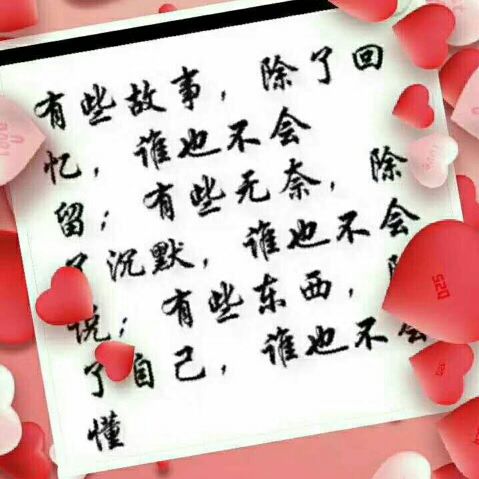 有些故事，除了回
忆，谁也不会
留；有些无奈，除
了沉默，谁也不会
说；有些东西，除
了自己，谁也不会
懂
520